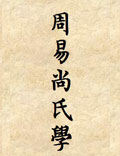 周易尚氏學